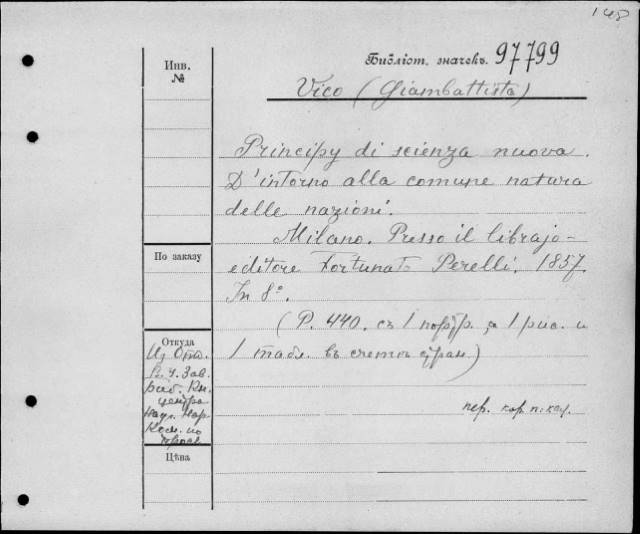 148
Инв.
№
Библіот. значекъ. 97799
Vico (Giambattista)
Principj di scienza nuova.
D'intorno alla comune natura
delle nazioni.
Milano. Presso il librajo-
editore Fortunato Perelli. 1857.
In 8°.
(P. 440. съ 1 портр. 1 рис. и
1 табл. въ счетѣ стран.)
По заказу
Откуда
Из Отд.
Зав.
Кн.
центра
Нар.
Ком. по
просв.
пер. кор.
Цѣна